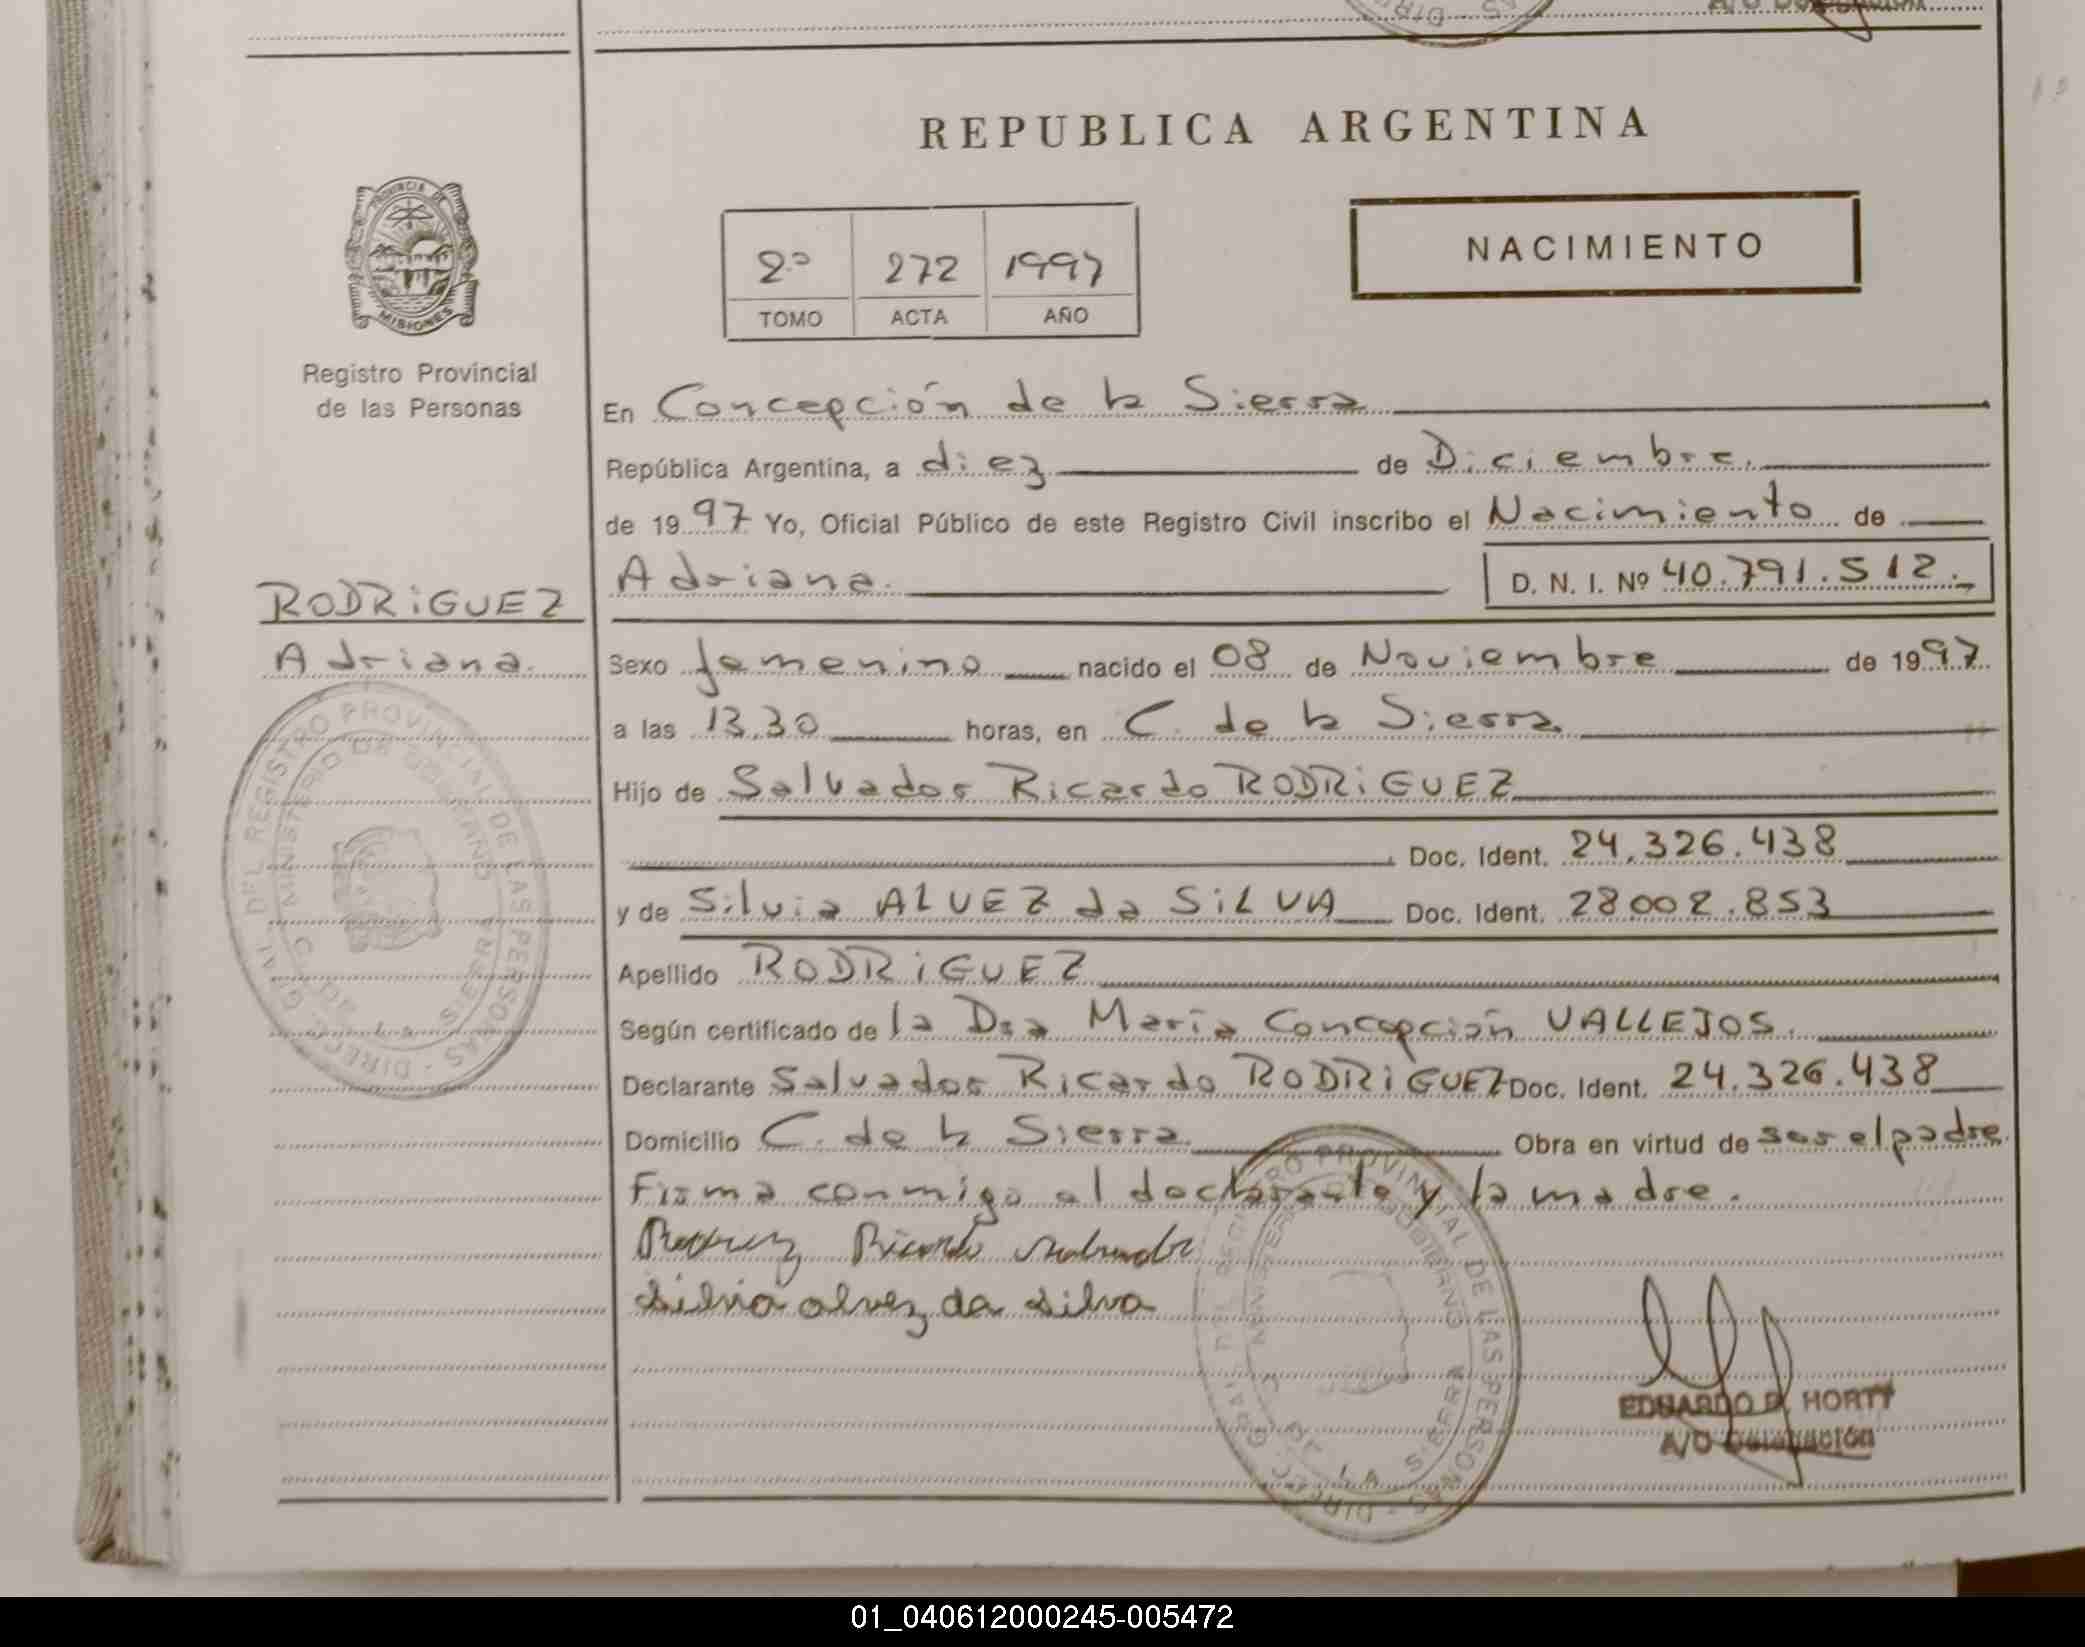 REPUBLICA ARGENTINA
PROVINCIA DE
MISIONES
Registro Provincial
de las Personas
2º 272 1997
TOMO ACTA AÑO
NACIMIENTO
En Concepción de la Sierra
República Argentina, a diez de Diciembre.
de 1997 Yo, Oficial Público de este Registro Civil inscribo el Nacimiento de
Adriana. D. N. I. Nº 40.791.512.
RODRiGUEZ
Adriana.
Sexo femenino nacido el 08 de Noviembre de 1997
a las 13.30 horas, en C. de la Sierra
Hijo de Salvador Ricardo RODRiGUEZ
Doc. Ident. 24.326.438
y de Silvia ALVEZ da SiLVA Doc. Ident. 28002.853
Apellido RODRiGUEZ
Según certificado de la Dra María Concepción VALLEJOS.
Declarante Salvador Ricardo RODRiGUEZ Doc. Ident. 24.326.438
Domicilio C. de la Sierra Obra en virtud de ser el padre
Firma conmigo el declarante y la madre.
Ricardo
Silvia alvez da silva
DIREC. GRAL. DEL REGISTRO PROVINCIAL DE LAS PERSONAS
MINISTERIO DE GOBIERNO
C. DE LA SIERRA
DIREC. GRAL. DEL REGISTRO PROVINCIAL DE LAS PERSONAS
MINISTERIO DE GOBIERNO
C. DE LA SIERRA
EDUARDO D. HORTY
A/C Delegación
01_040612000245-005472